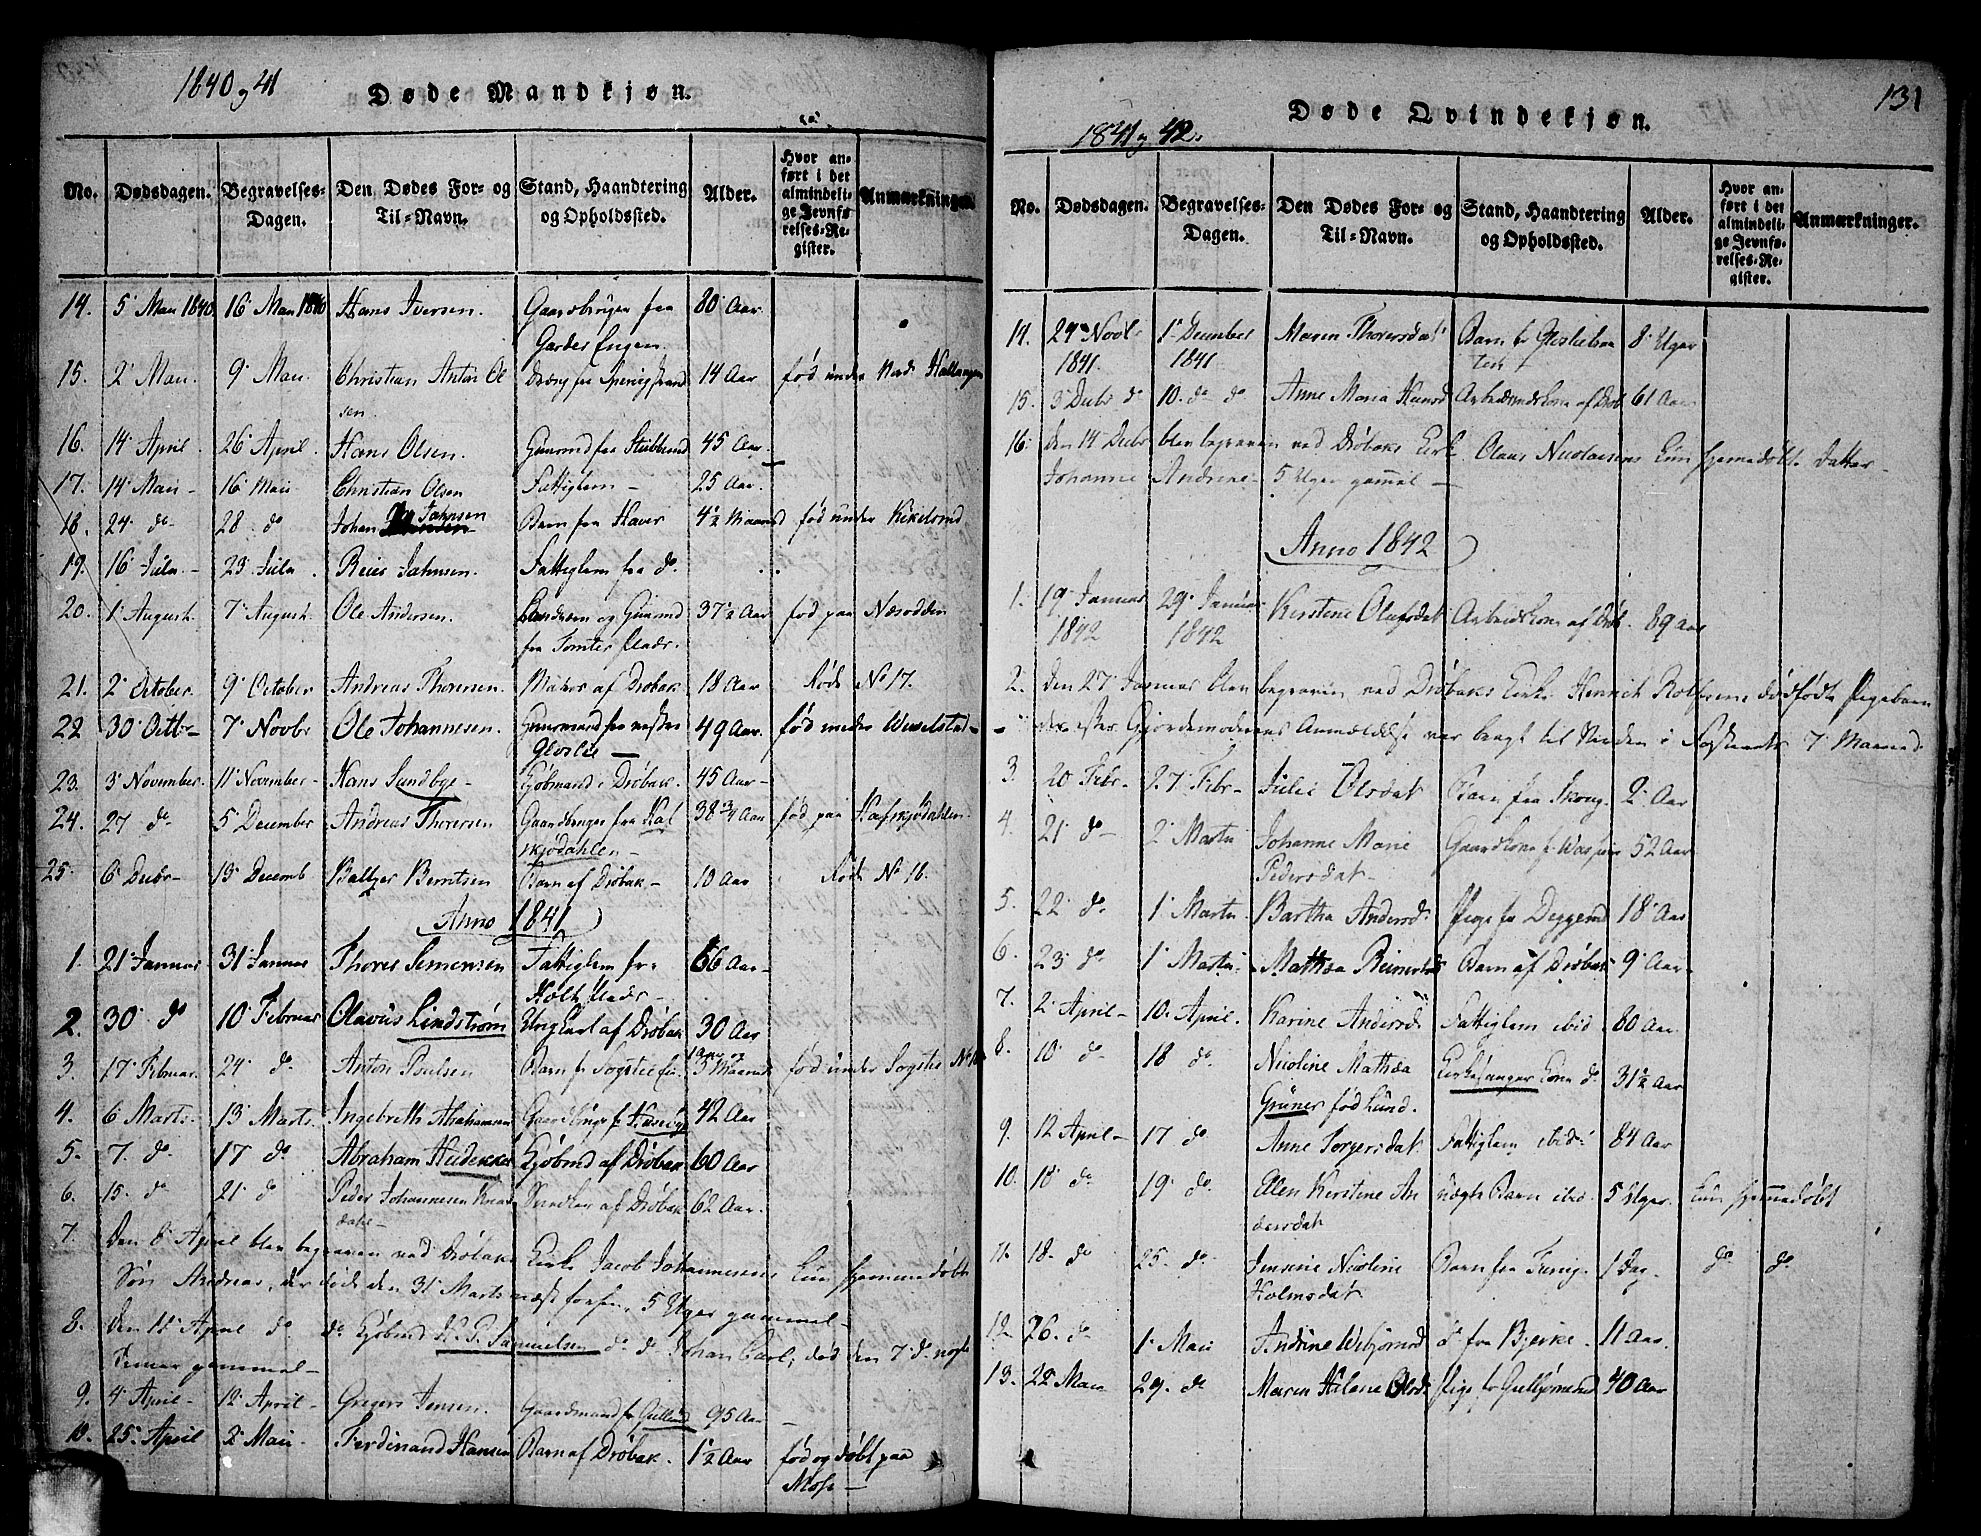 1840 og 41
Døde Mandkjøn.
No. Dødsdagen. Begravelses-Dagen. Den Dødes For- og Til-Navn. Stand, Haandtering og Opholdssted. Alder. Hvor anført i det almindelige Jevnførelses-Register. Anmærkninger.
14. 5 Mai 1840. 16 Mai 1840 Hans Iversen. Gaardbruger fra 80 Aar
Garder Engen.
15. 2 Mai. 9 Mai. Christian Anton Ol Dreng fra 14 Aar fød under Nord Hallangen
sen.
16. 14 April 26 April. Hans Olsen. Huusmd fra 45 Aar.
17. 14 Mai - 16 Mai Christian Olsen Fattiglem - 25 Aar.
18. 24 do 28 do Johan Jahnsen Barn fra Haver 4½ Maaned fød under
19. 16 Julii - 23 Julii. Reier Jahnsen. Fattiglem fra do.
20. 1 August. 7 August. Ole Andersen. og Huusmd 37½ Aar fød paa Næsodden
fra Tomter Plads.
21. 2 October. 9 October Andreas Thoresen. Matros af Drøbak 18 Aar Røde No 17.
22 30 Octbr - 7 Novbr Ole Johannesen. Huusmand fra 49 Aar fød under
Gloslie -
23. 3 November. 11 November - Hans Sundbye - Kjøbmand i Drøbak. 45 Aar -
24. 27 do 5 December Andreas Thoresen Gaardbruger fra Hal 38¾ Aar fød paa
skjødahlen -
25. 6 Decbr - 13 Decemb Baltzer Berntsen Barn af Drøbak - 10 Aar Røde No 16.
Anno 1841
1. 21 Januar - 31 Januar Thores Simensen Fattiglem fra 66 Aar -
Holt Plads -
2. 30 do 10 Februar Olavus Lindstrøm Ungkarl af Drøbak 30 Aar
3. 17 Februar. 24 do Anton Poulsen Barn fr 1 Aar og 3 Maaned fød under
4. 6 Marts. 13 Marts. Ingebreth Abrahamsen Gaardbruger fr 42 Aar
5. 7 do 17 do Abraham Kjøbmd af Drøbak 60 Aar
6. 15 do 21 do Peder Johannesen af Drøbak 62 Aar.
7. Den 8 April blev begraven ved Drøbaks Kirke Jacob Johannesens hjemmedøbte
Søn Andreas, der døde den 31 Marts næstforhen, 5 Uger gammel -
8. Den 11 April do do Kjøbmd H. P. Samuelsen do do Johan Carl, død den 7 do nogle
Timer gammel -
9. 4 April - 12 April - Gregers Jensen. Gaardmand fr 95 Aar -
10. 25 April 2 Mai Ferdinand Hansen Barn af Drøbak. 1½ Aar fød og døbt paa
Moss -
131
Døde Qvindekjøn.
1841 og 42.
No. Dødsdagen. Begravelses-Dagen. Den Dødes For- og Til-Navn. Stand, Haandtering og Opholdssted. Alder. Hvor anført i det almindelige Jevnførelses-Register. Anmærkninger.
14. 24 Novbr 1 December Maren Thoresdat Barn fr 8 Uger
1841. 1841
15. 3 Decbr do 10. do do Anne Maria Hansd Arbeidsmdskone af Drøb 61 Aar
16. Den 14 Decbr blev begraven ved Drøbaks Kirke Olaus Nicolaisens hjemmedøbte Datter
Johanne Andrine - 5 Uger gammel -
Anno 1842
1. 19 Januar 29 Januar Kirstine Olafsdat Arbeidskone af Drøb. 89 Aar
1842 1842
2. Den 27 Januar blev begraven ved Drøbaks Kirke Henrich Rolfsens dødfødte Pigebarn
der efter Gjordemoderens Anmeldelse var bragt til Verden i 7 Maaned.
3. 20 Febr - 27 Febr - Julie Olsdat Barn fra Skoug. 2 Aar
4. 21 do - 2 Martii Johanne Marie Gaardkone fr 52 Aar
Pedersdat -
5. 22 do 1 Martii Bartha Andersd Pige fr Deggerud 18 Aar
6. 23 do 1 Martii. Mathea Barn af Drøbak 9 Aar -
7. 2 April - 10. April. Karine Andersd Fattiglem ibid 80 Aar
8. 10 do 18 do Nicoline Mathea Kirkesanger Kone do 31½ Aar
Grüner fød Lund.
9. 12 April - 17 do Anne Torgersdat Fattiglem ibid 84 Aar
10. 18 do 19 do Ellen Kirstine An uægte Barn ibid. 5 Uger. hjemmedøbt
dersdat
11. 18. do 25. do Jensine Nicoline Barn fra 1 Dag do do
Holmsdat
12. 26. do 1 Mai Andrine do fra Bjerke. 11 Aar.
13. 22 Mai 29. do Maren Helene Olsd. Pige fr 40 Aar